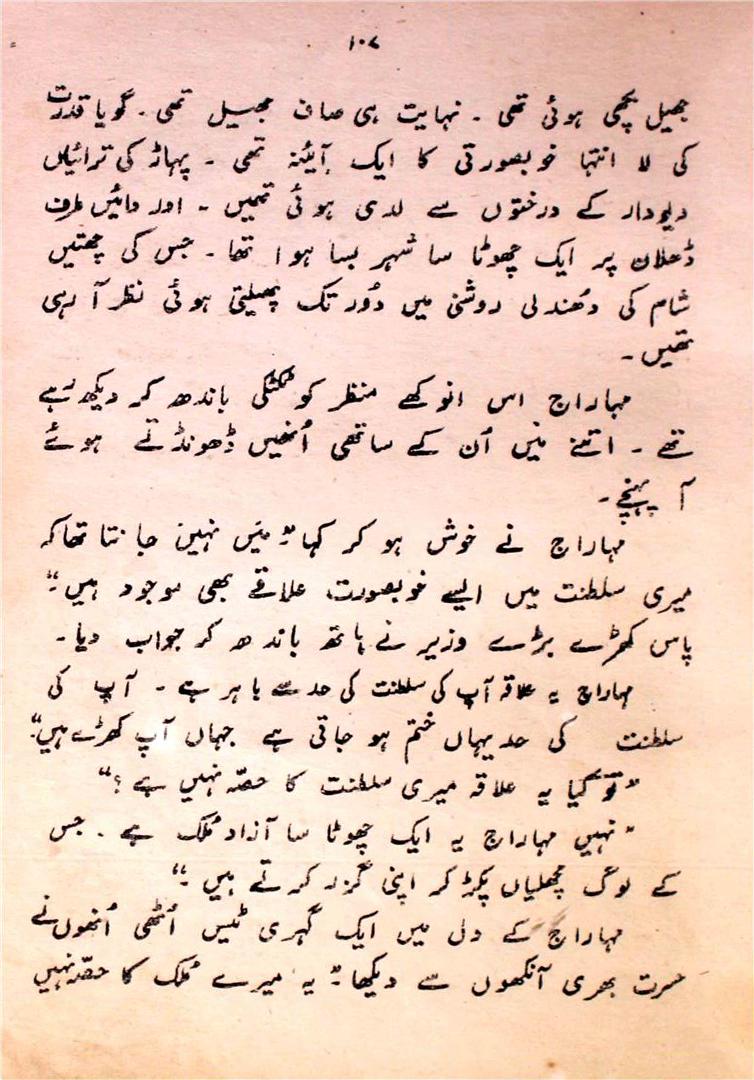 ۱۰۷
جھیل بچھی ہوئی تھی۔ نہایت ہی صاف جھیل تھی۔ گویا قدرت
کی لا انتہا خوبصورتی کا ایک آئینہ تھی۔ پہاڑ کی ترائیاں
دیودار کے درختوں سے لدی ہوئی تھیں۔ اور دائیں طرف
ڈھلان پر ایک چھوٹا سا شہر بسا ہوا تھا۔ جس کی چھتیں
شام کی دُھندلی روشنی میں دُور تک پھیلتی ہوئی نظر آ رہی
تھیں۔
مہاراج اس انوکھے منظر کو ٹکٹکی باندھ کر دیکھ رہے
تھے۔ اتنے میں اُن کے ساتھی اُنھیں ڈھونڈتے ہوئے
آ پہنچے۔
مہاراج نے خوش ہو کر کہا۔" میں نہیں جانتا تھا کہ
میری سلطنت میں ایسے خوبصورت علاقے بھی موجود ہیں۔"
پاس کھڑے بڑے وزیر نے ہاتھ باندھ کر جواب دیا۔
مہاراج یہ علاقہ آپ کی سلطنت کی حد سے باہر ہے۔ آپ کی
سلطنت کی حد یہاں ختم ہو جاتی ہے جہاں آپ کھڑے ہیں۔"
"تو کیا یہ علاقہ میری سلطنت کا حصّہ نہیں ہے؟"
"نہیں مہاراج یہ ایک چھوٹا سا آزاد مُلک ہے۔ جس
کے لوگ مچھلیاں پکڑ کر اپنی گزر کرتے ہیں۔"
مہاراج کے دل میں ایک گہری ٹیس اُٹھی اُنھوں نے
حسرت بھری آنکھوں سے دیکھا۔" یہ میرے مُلک کا حصّہ نہیں